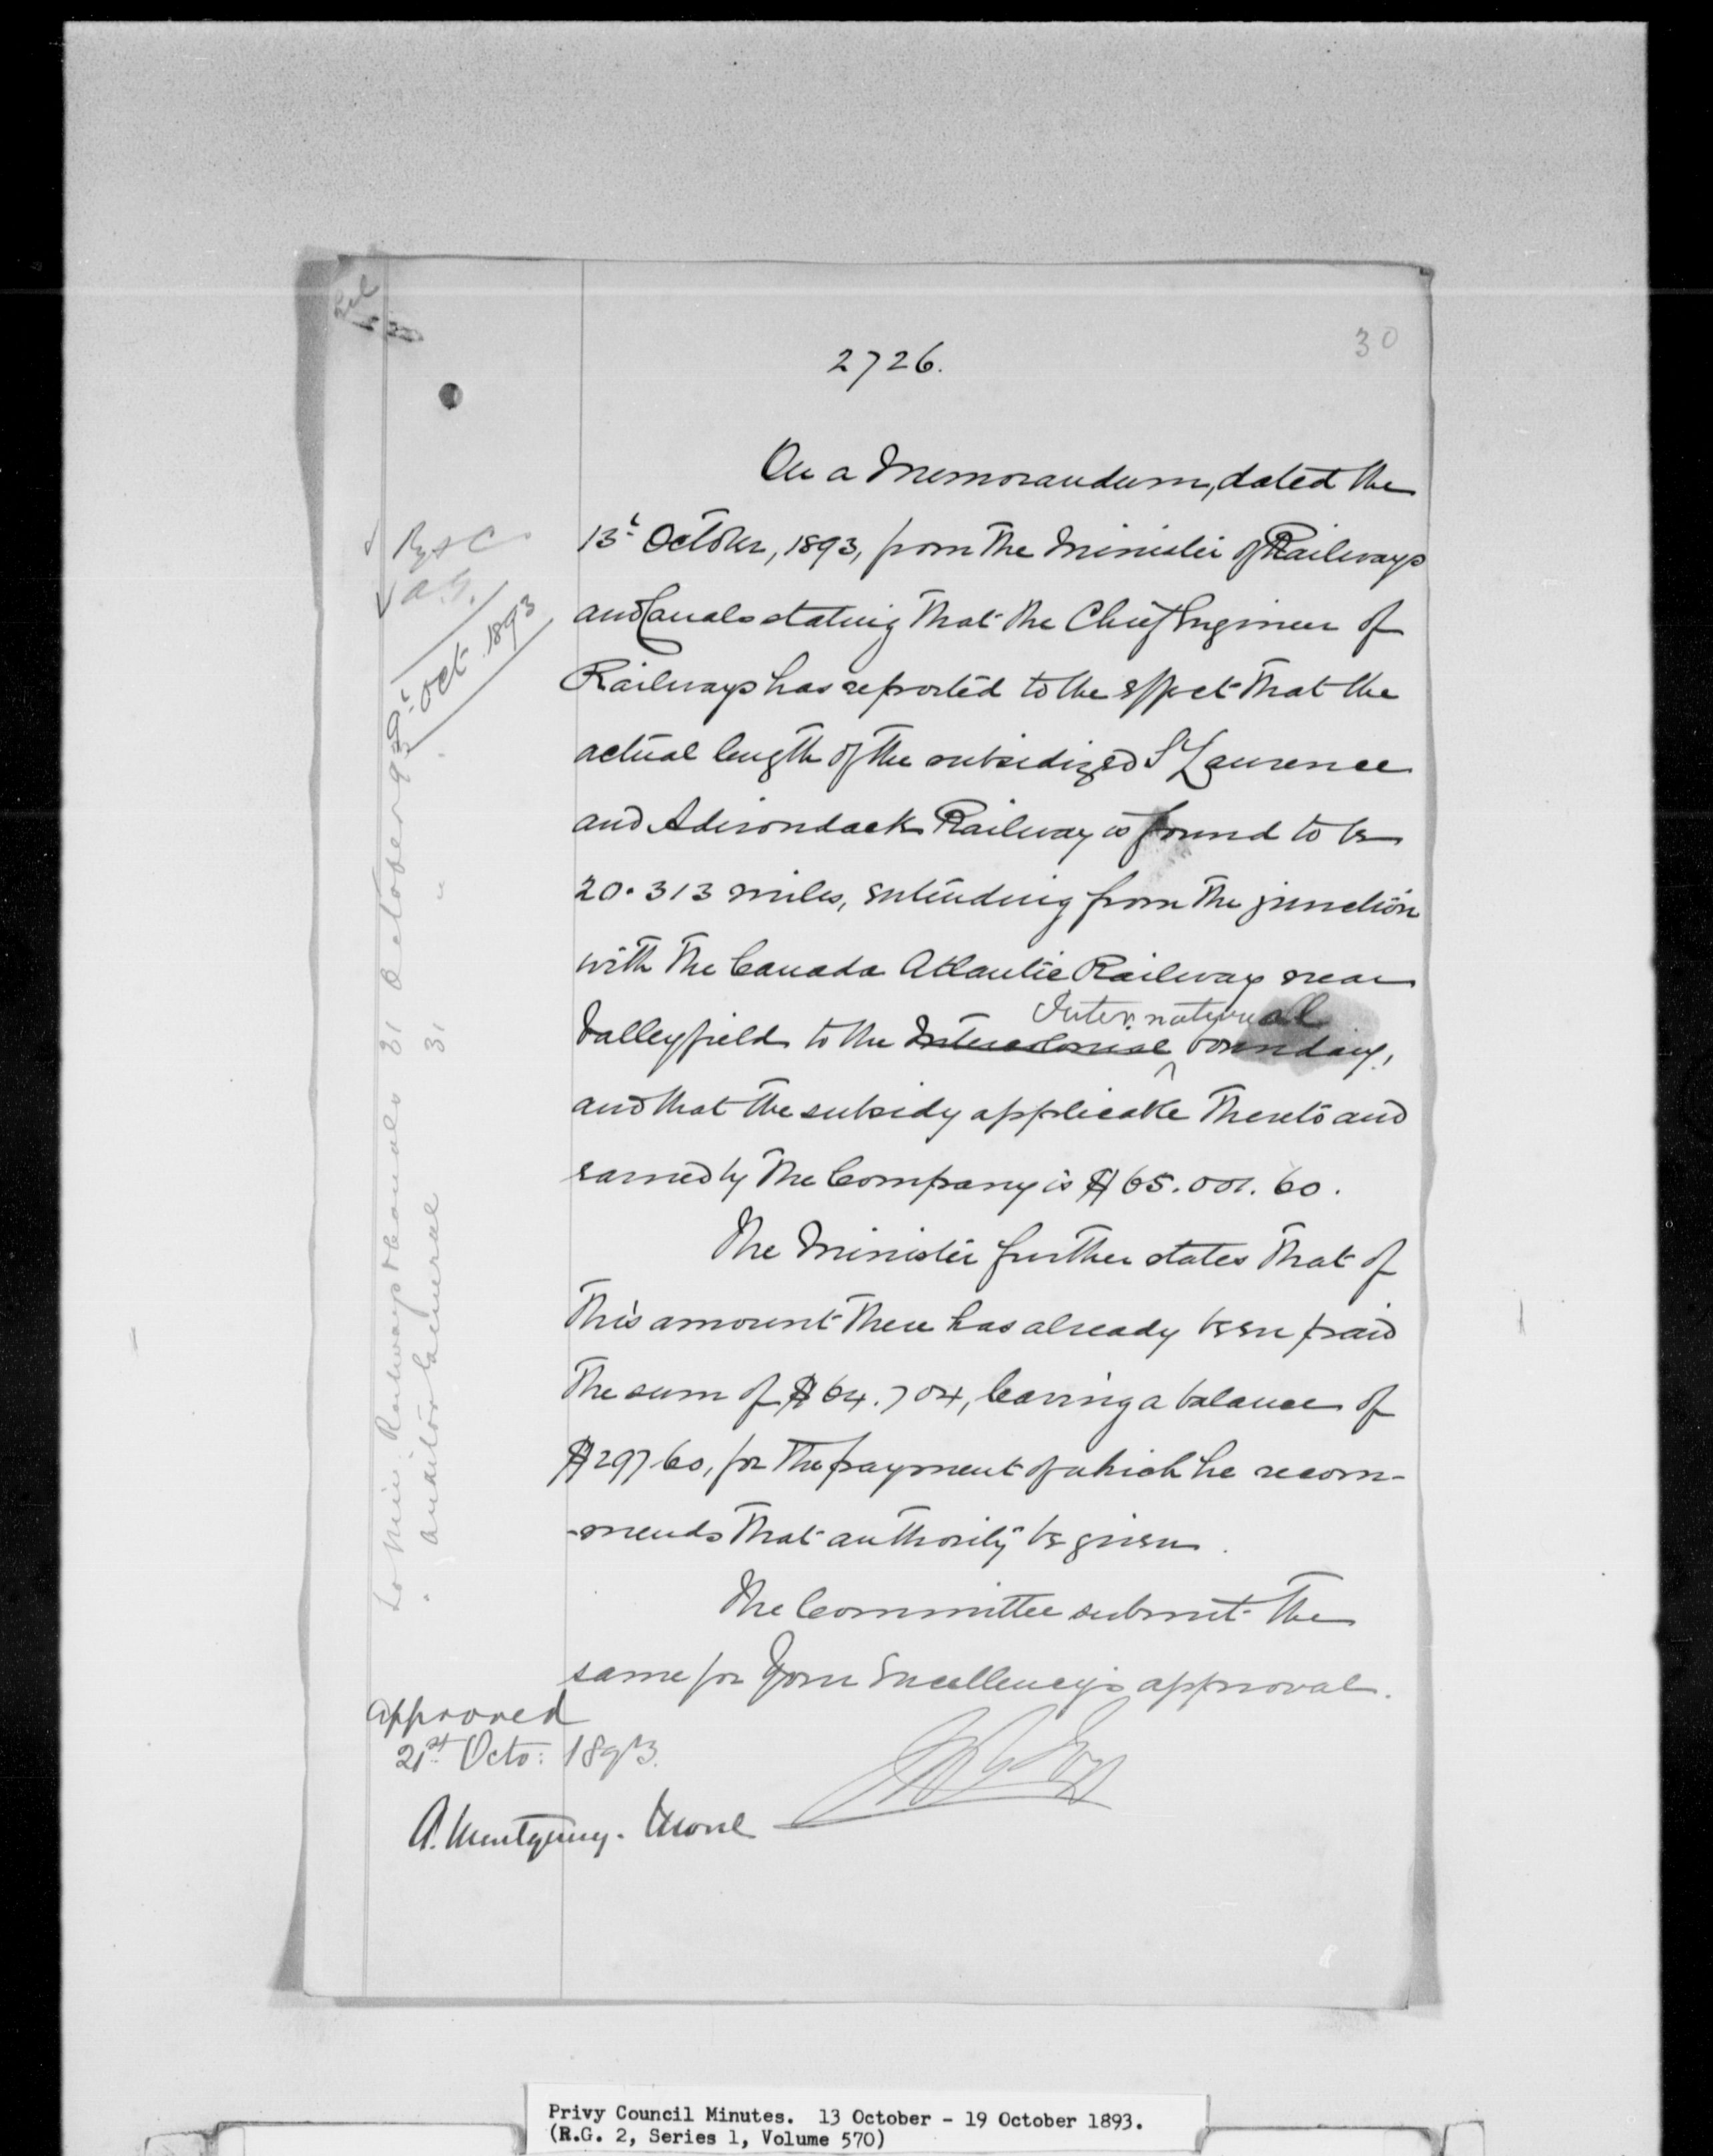 30
2726.
On a Memorandum, dated the
13th October, 1893, from the Minister of Railways
and Canals stating that the Chief Engineer of
Railways has reported to the effect that the
actual length of the subsidized St Lawrence
and Adirondack Railway is found to be
20.313 miles, extending from the junction
with the Canada Atlantic Railway near
International
Valleyfield to the Intercolonial boundary,
and that the subsidy applicable thereto and
earned by the Company is $65.001.60.
The Minister further states that of
this amount there has already been paid
the sum of $64.704, leaving a balance of
$297.60, for the payment of which he recom-
-mends that authority be given.
The Committee submit the
same for Your Excellency's approval.
Approved
21st Octo: 1893.
Rys & C
A.G.
Oct 1893
To Min. Railways & Canals 31 October 93
" Auditor General 31 "
Privy Council Minutes. 13 October - 19 October 1893.
(R.G. 2, Series 1, Volume 570)